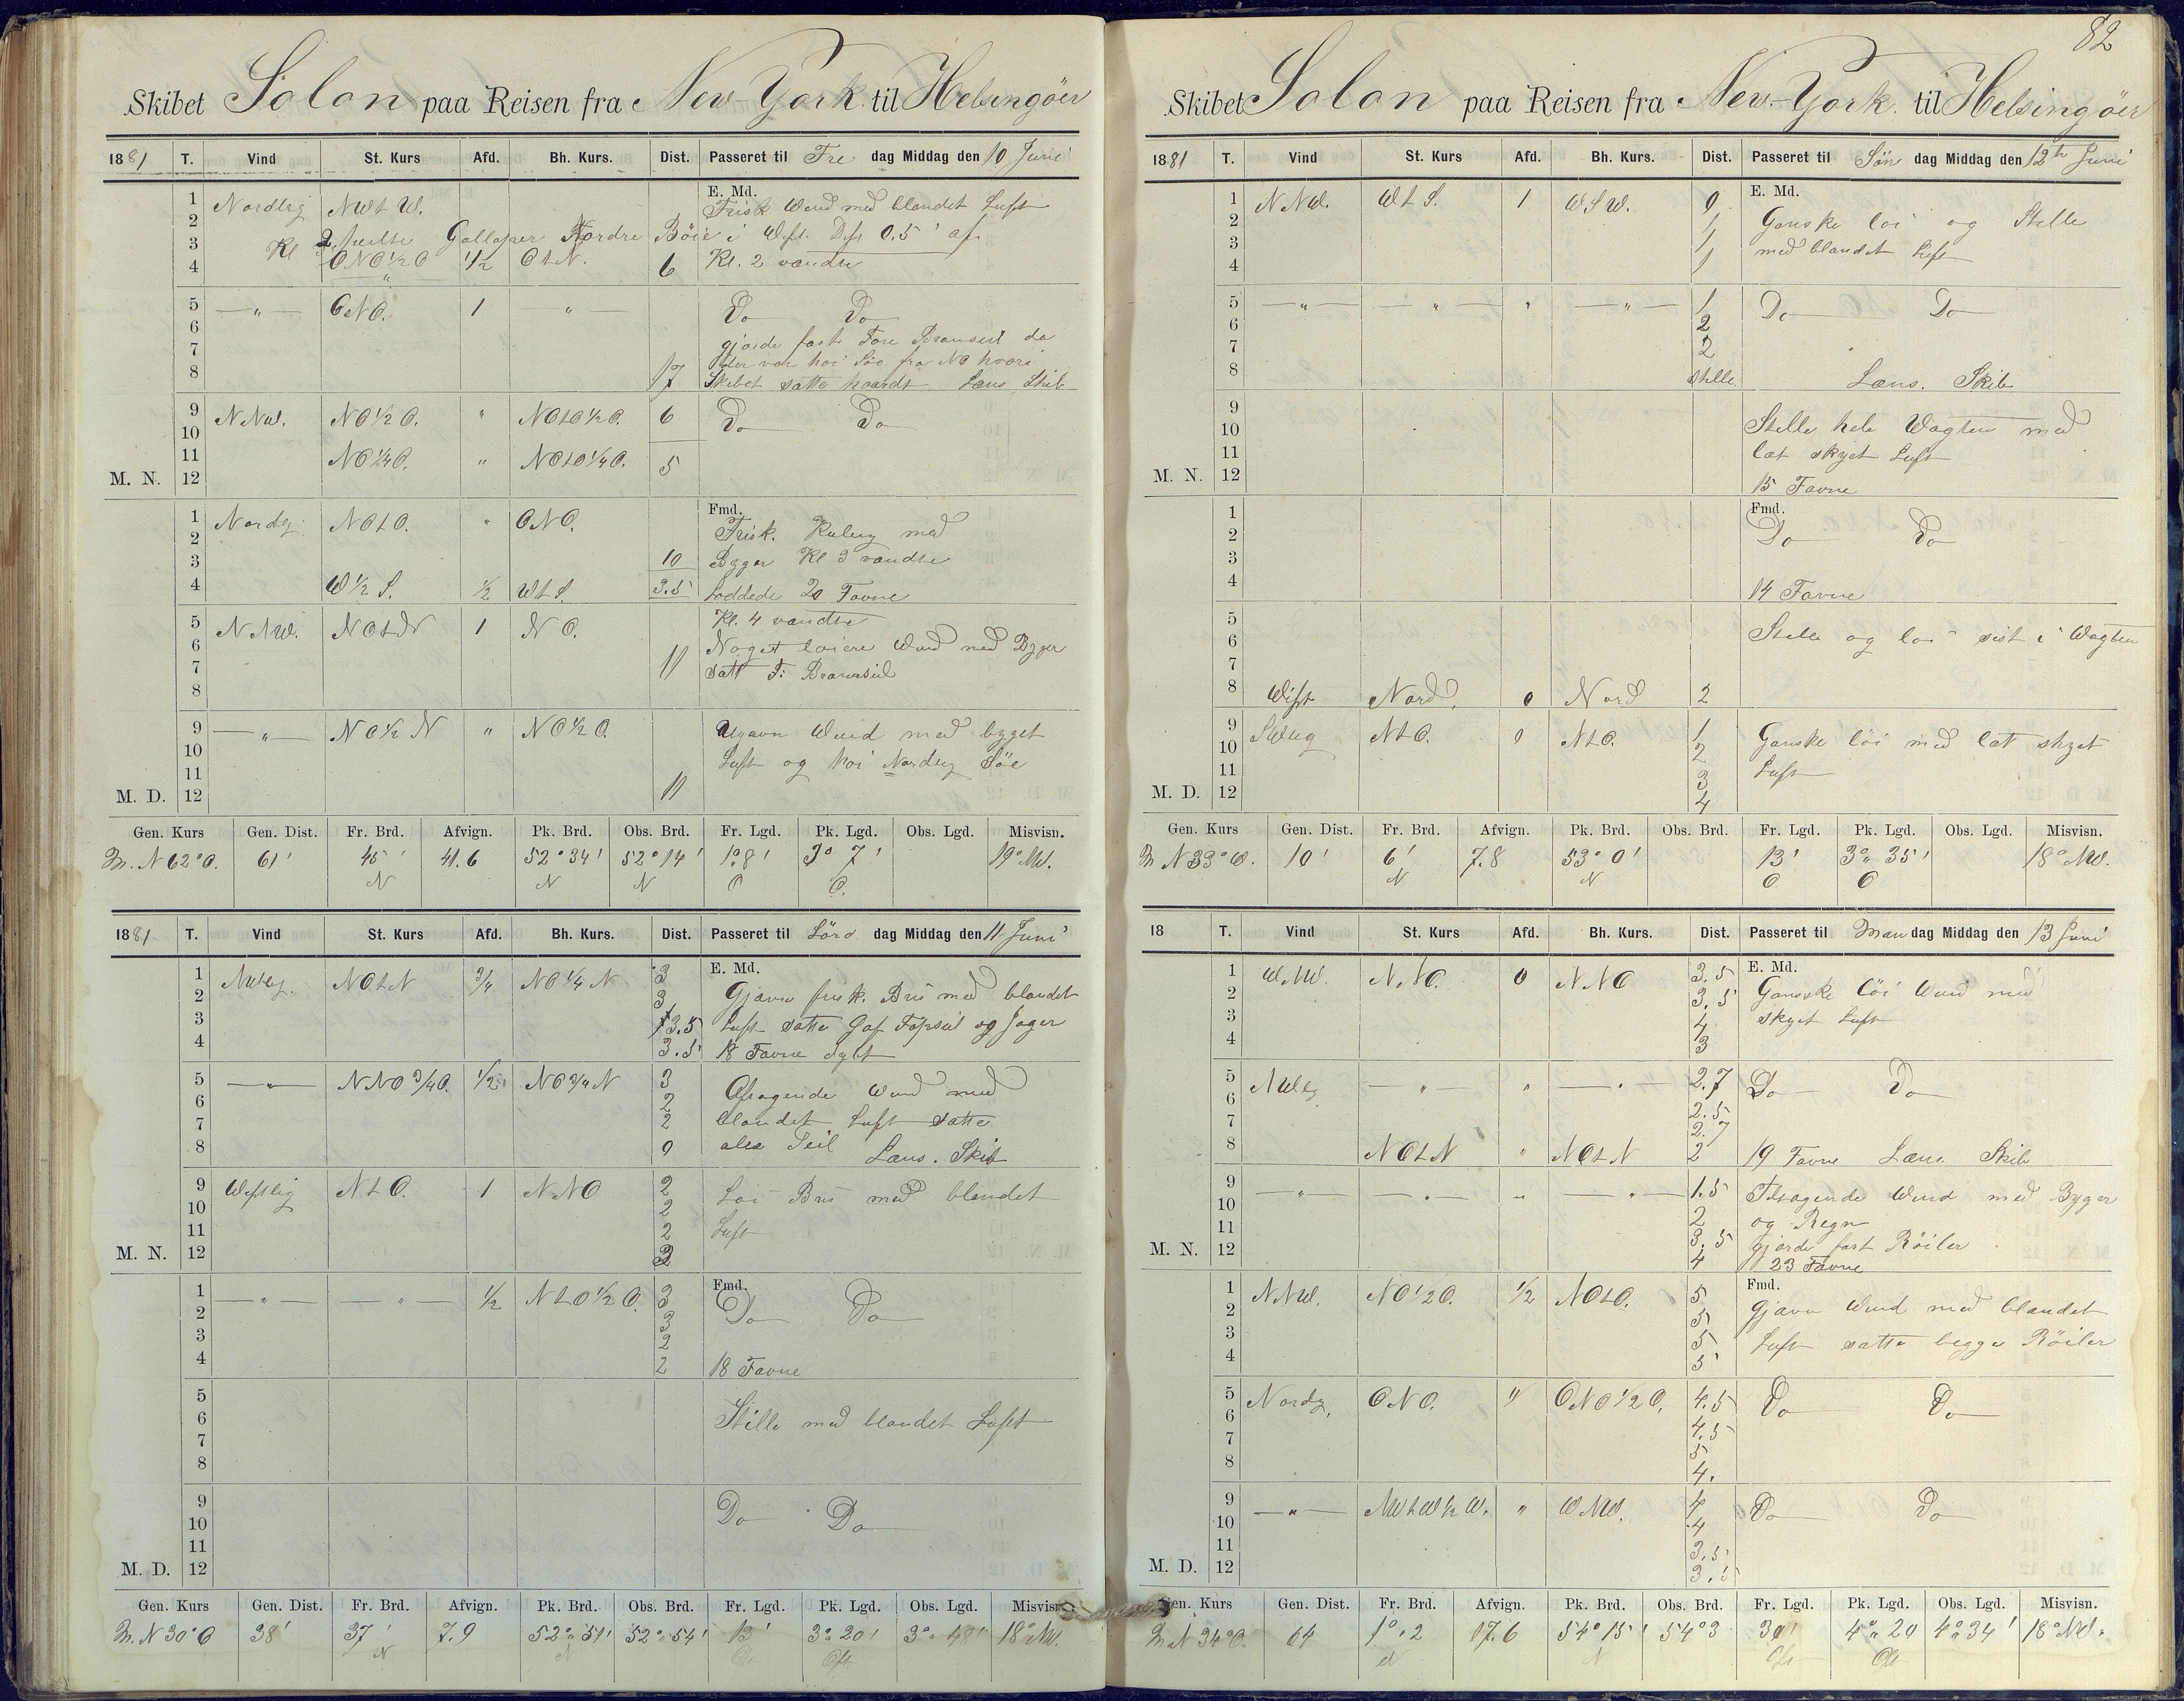 Skibet Solon paa Reisen fra New-York til Helsingöer
1881 T. Vind St. Kurs Afd. Bh. Kurs. Dist. Passeret til Fre dag Middag den 10 Juni
E. Md.
1 Nordlig NWtW. Frisk Wind med blandet Luft
2
3 Kl 2 Galloper Nordre Böie i West Dist 0.5' af
4 ONO½O ½ OtN. 6 Kl. 2 vendte
5 —"— ONO. 1 —"— Do Do
6 gjorde fast Fore Bramseil da
7 der var hoi Söe fra NO hvori
8 17 Skibet satte haardt Læns Skib
9 NNW. NO½O. " NOtO½O. 6 Do Do
10
11 NO¼O. " NOtO¼O. 5
M. N. 12
Fmd.
1 Nordlig NOtO. " ONO.
2 Frisk Kuling med
3 10 Byger Kl 3 vendte
4 W½S. ½ WtS. 3.5 Loddede 20 Favne
5 NNW. NOtN 1 NO. Kl. 4 vendte
6 11 Noget löiere Wind med Byger
7 satt F: Bramseil
8
9 —"— NO½N " NO½O. Ujevn Wind med byget
10 Luft og hoi Nordlig Söe
11
M. D. 12 11
Gen. Kurs Gen. Dist. Fr. Brd. Afvign. Pk. Brd. Obs. Brd. Fr. Lgd. Pk. Lgd. Obs. Lgd. Misvisn.
M. N 62° O. 61' 45' 41.6 52° 34' 52° 14' 1° 8' 3° 7' 19° NW.
N N N O O.
1881 T. Vind St. Kurs Afd. Bh. Kurs. Dist. Passeret til Lörd dag Middag den 11 Juni
E. Md.
1 NWlig. NOtN ¾ NO¼N 3
2 3 Gjævn frisk Bris med blandet
3 3.5 Luft satte Gaf Topseil og Jager
4 3.5 18 Favne dybt
5 —"— NNO¾O. ½ NO¾N 3 Aftagende Wind med
6 2
7 2 blandet Luft satte
8 0 alle Seil Læns. Skib
9 Westlig NtO. 1 NNO 2 Löi Bris med blandet
10 2
11 2 Luft
M. N. 12 2
Fmd.
1 —"— —"— ½ NtO½O. 3 Do Do
2 3
3 2
4 2 18 Favne
5
6 Stille med blandet Luft
7
8
9 Do Do
10
11
M. D. 12
Gen. Kurs Gen. Dist. Fr. Brd. Afvign. Pk. Brd. Obs. Brd. Fr. Lgd. Pk. Lgd. Obs. Lgd. Misvisn.
M. N 30° O 38' 37' 7.9 52° 51' 52° 54' 13' 3° 20' 3° 48' 18° NW.
N N Ost Ost
82
Skibet Solon paa Reisen fra New-York. til Helsingöer
1881 T. Vind St. Kurs Afd. Bh. Kurs. Dist. Passeret til Sön dag Middag den 12te Juni
E. Md.
1 NNW. WtS. 1 WSW. 0
2 1 Ganske löi og Stille
3 1 med blandet Luft
4 1
5 —"— —"— " —"— 1 Do Do
6 2
7 2
8 Stille Læns. Skib
9 Stille hele Wagten med
10
11 læt skyet Luft
M. N. 12 15 Favne
Fmd.
1 Do Do
2
3
4 14 Favne
5 Stille og löi sist i Wagten
6
7
8 West Nord. 0 Nord 2
9 SWlig NtO. 0 NtO. 1 Ganske löi med læt skyet
10 2
11 3 Luft
M. D. 12 4
Gen. Kurs Gen. Dist. Fr. Brd. Afvign. Pk. Brd. Obs. Brd. Fr. Lgd. Pk. Lgd. Obs. Lgd. Misvisn.
M N 33° W. 10' 6' 7.8 53° 0' 13' 3° 35' 18° NW.
N N O O
18 T. Vind St. Kurs Afd. Bh. Kurs. Dist. Passeret til Man dag Middag den 13 Juni
E. Md.
1 WNW. NNO. 0 NNO 3.5
2 3.5 Ganske löi Wind med
3 4 skyet Luft
4 3
5 NWlig —"— " —"— 2.7 Do Do
6 2.5
7 2.7
8 NOtN " NOtN 2 19 Favne Læns Skib
9 —"— —"— " —"— 1.5 Tiltagende Wind med Byger
10 2 og Regn
11 3.5 gjorde fast Röiler
M. N. 12 4 23 Favne
Fmd.
1 NNW. NO½O. ½ NOtO. 5
2 5 Gjævn Wind med blandet
3 5 Luft satte begge Röiler
4 5
5 Nordlg. ONO. " ONO½O. 4.5 Do Do
6 4.5
7 5
8 4.
9 —"— NWtW½W. " WNW. 4 Do Do
10 4
11 3.5
M. D. 12 3.5
Gen. Kurs Gen. Dist. Fr. Brd. Afvign. Pk. Brd. Obs. Brd. Fr. Lgd. Pk. Lgd. Obs. Lgd. Misvisn.
M N 34° O. 64 1° 2 17.6 54° 15' 54° 3 30' 4° 20 4° 34' 18° NW.
N N Ost Ost